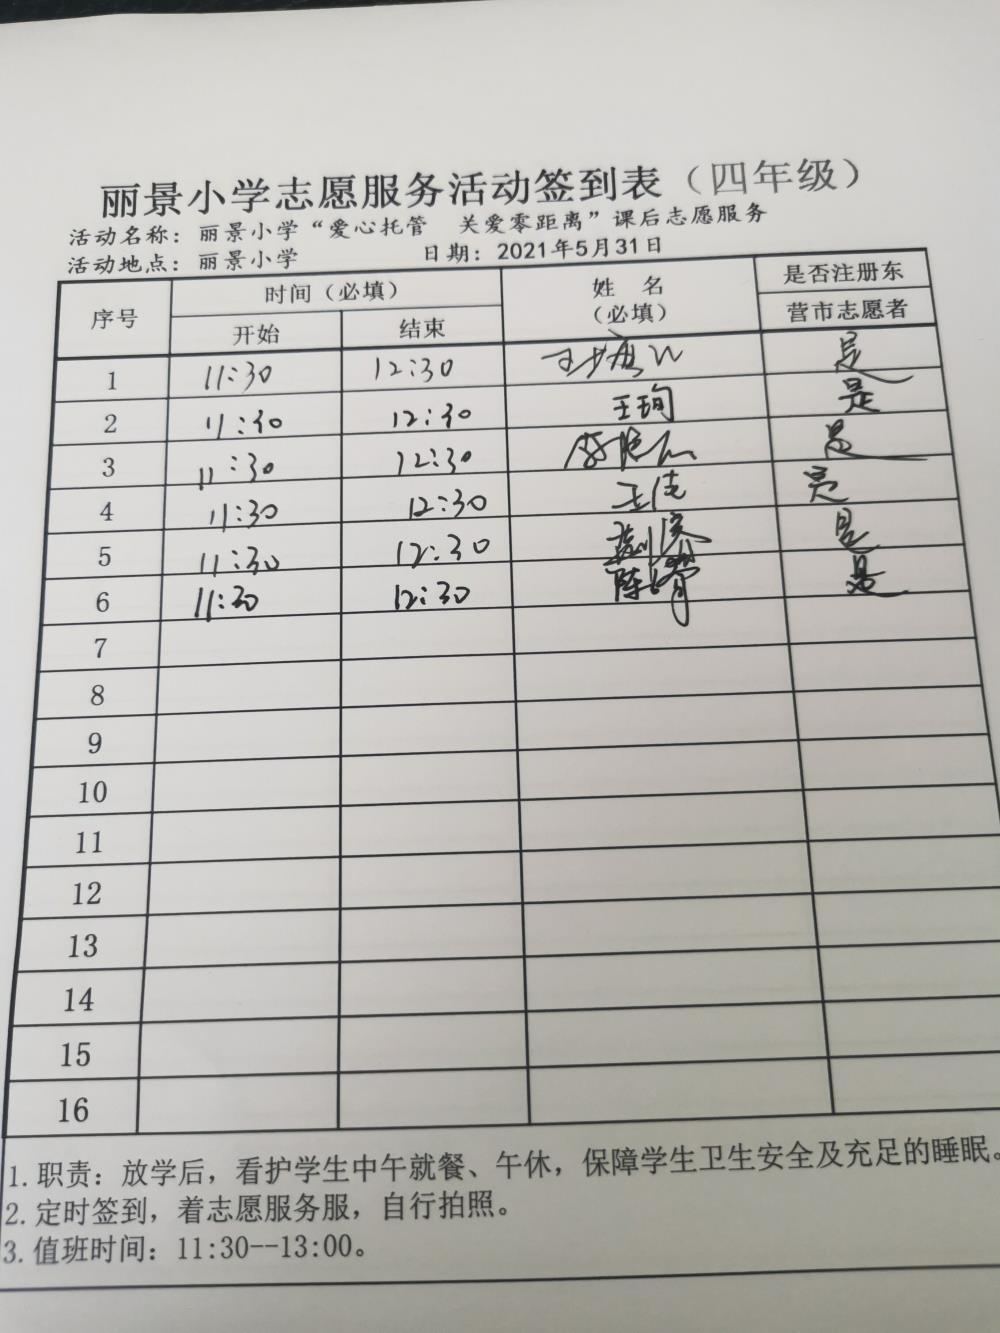 丽景小学志愿服务活动签到表（四年级）
活动名称：丽景小学“爱心托管 关爱零距离”课后志愿服务
活动地点：丽景小学 日期：2021年5月31日
序号 时间（必填） 姓 名（必填） 是否注册东营市志愿者
开始 结束
1 11:30 12:30 是
2 11:30 12:30 王珣 是
3 11:30 12:30 是
4 11:30 12:30 王佳 是
5 11:30 12:30 是
6 11:30 12:30 陈 是
7
8
9
10
11
12
13
14
15
16
1.职责：放学后，看护学生中午就餐、午休，保障学生卫生安全及充足的睡眠。
2.定时签到，着志愿服务服，自行拍照。
3.值班时间：11:30--13:00。